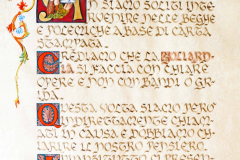 NON SIAMO SOLITI INTE
RVENIRE NELLE BEGHE
E POLEMICHE A BASE DI CARTA
STAMPATA.
CREDIAMO CHE LA GOLIARD
IA SI FACCIA CON CHIARE
OPERE E NON CON BANDI O GR
IDA.
QUESTA VOLTA SIAMO PERÒ
INDIRETTAMENTE CHIAMA
TI IN CAUSA E DOBBIAMO CH
IARIRE IL NOSTRO PENSIERO.